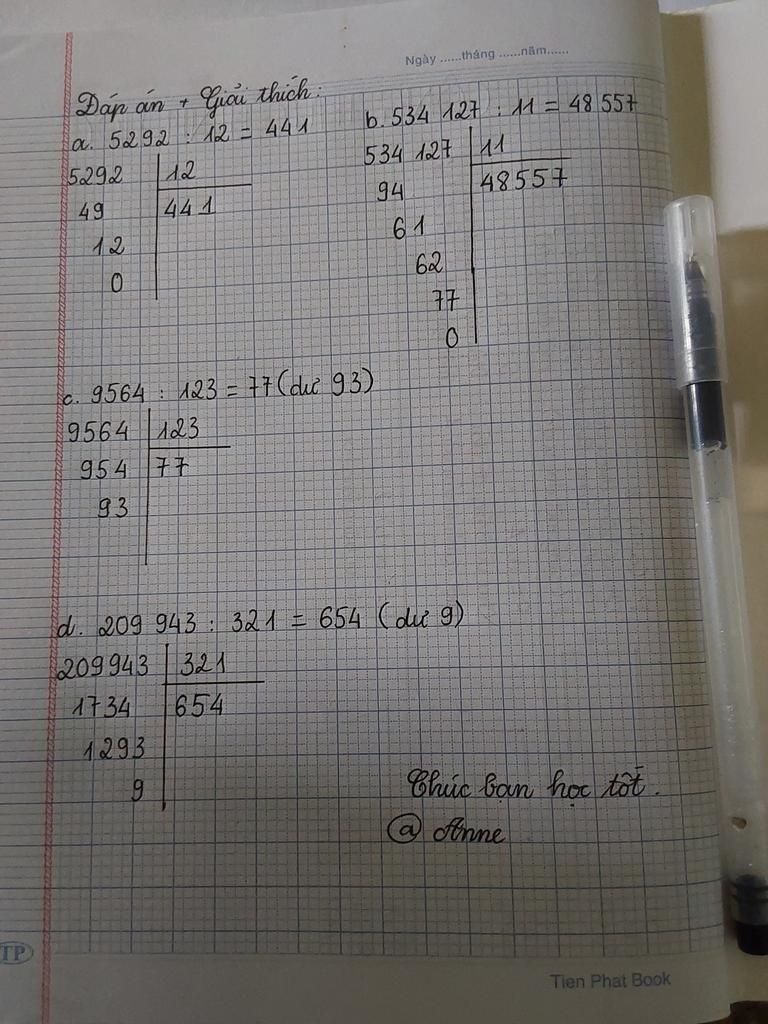 Ngày ......tháng ......năm......
Đáp án + Giải thích:
a. 5292 : 12 = 441
5292 12
49 441
12
0
b. 534 127 : 11 = 48 557
534 127 11
94 48557
61
62
77
0
c. 9564 : 123 = 77 (dư 93)
9564 123
954 77
93
d. 209 943 : 321 = 654 (dư 9)
209943 321
1734 654
1293
9
Chúc bạn học tốt.
@ Anne
TP
Tien Phat Book